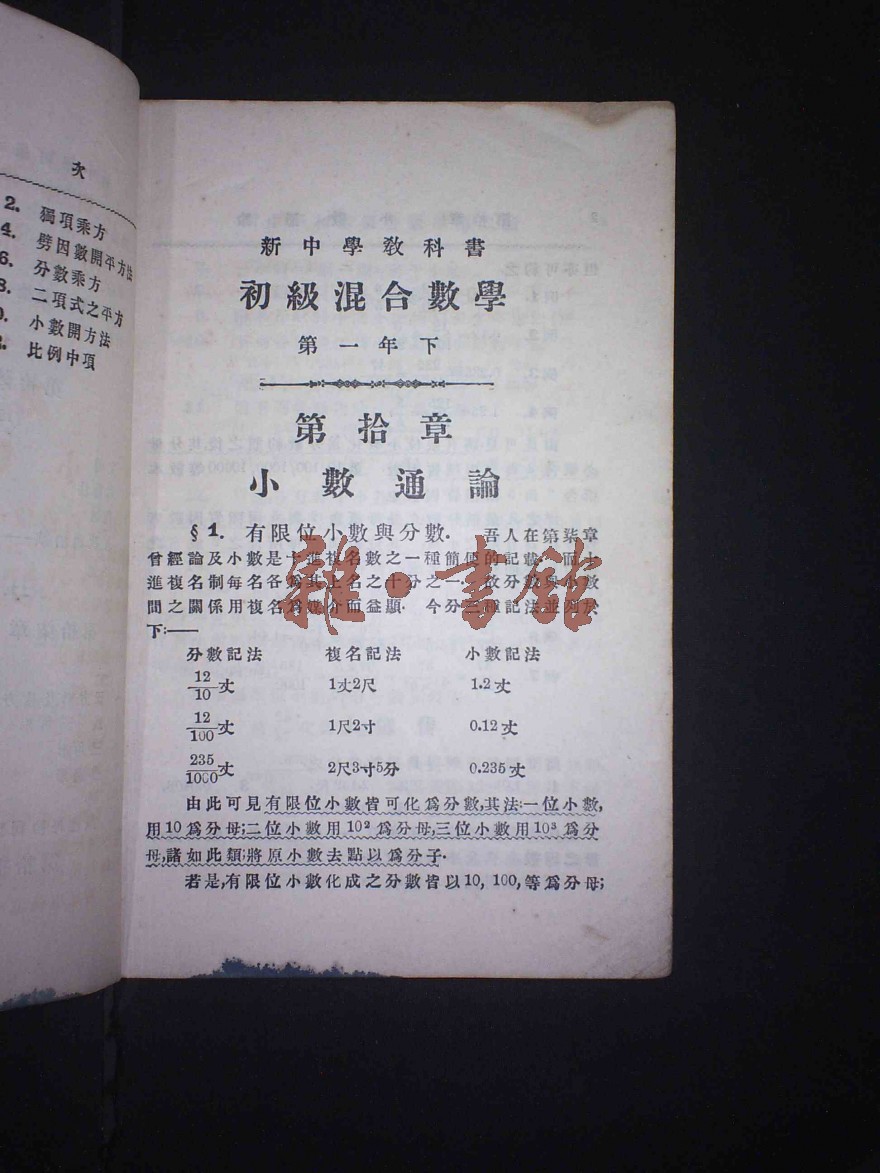 次
2. 獨項乘方
4. 劈因數開平方法
6. 分數乘方
8. 二項式之平方
0. 小數開方法
2. 比例中項
新中學敎科書
初級混合數學
第一年下
第拾章
小數通論
§1. 有限位小數與分數. 吾人在第柒章
曾經論及小數是十進複名數之一種簡便的記載 而十
進複名制每名各爲其上名之十分之一 故分數與小數
間之關係用複名爲媒介而益顯. 今分三種記法並列於
下:——
分數記法 複名記法 小數記法
12/10丈 1丈2尺 1.2丈
12/100丈 1尺2寸 0.12丈
235/1000丈 2尺3寸5分 0.235丈
由此可見有限位小數皆可化爲分數,其法:一位小數,
用10爲分母;二位小數用10²爲分母,三位小數用10³爲分
母,諸如此類:將原小數去點以爲分子.
若是,有限位小數化成之分數皆以10, 100,等爲分母;
雜·書館